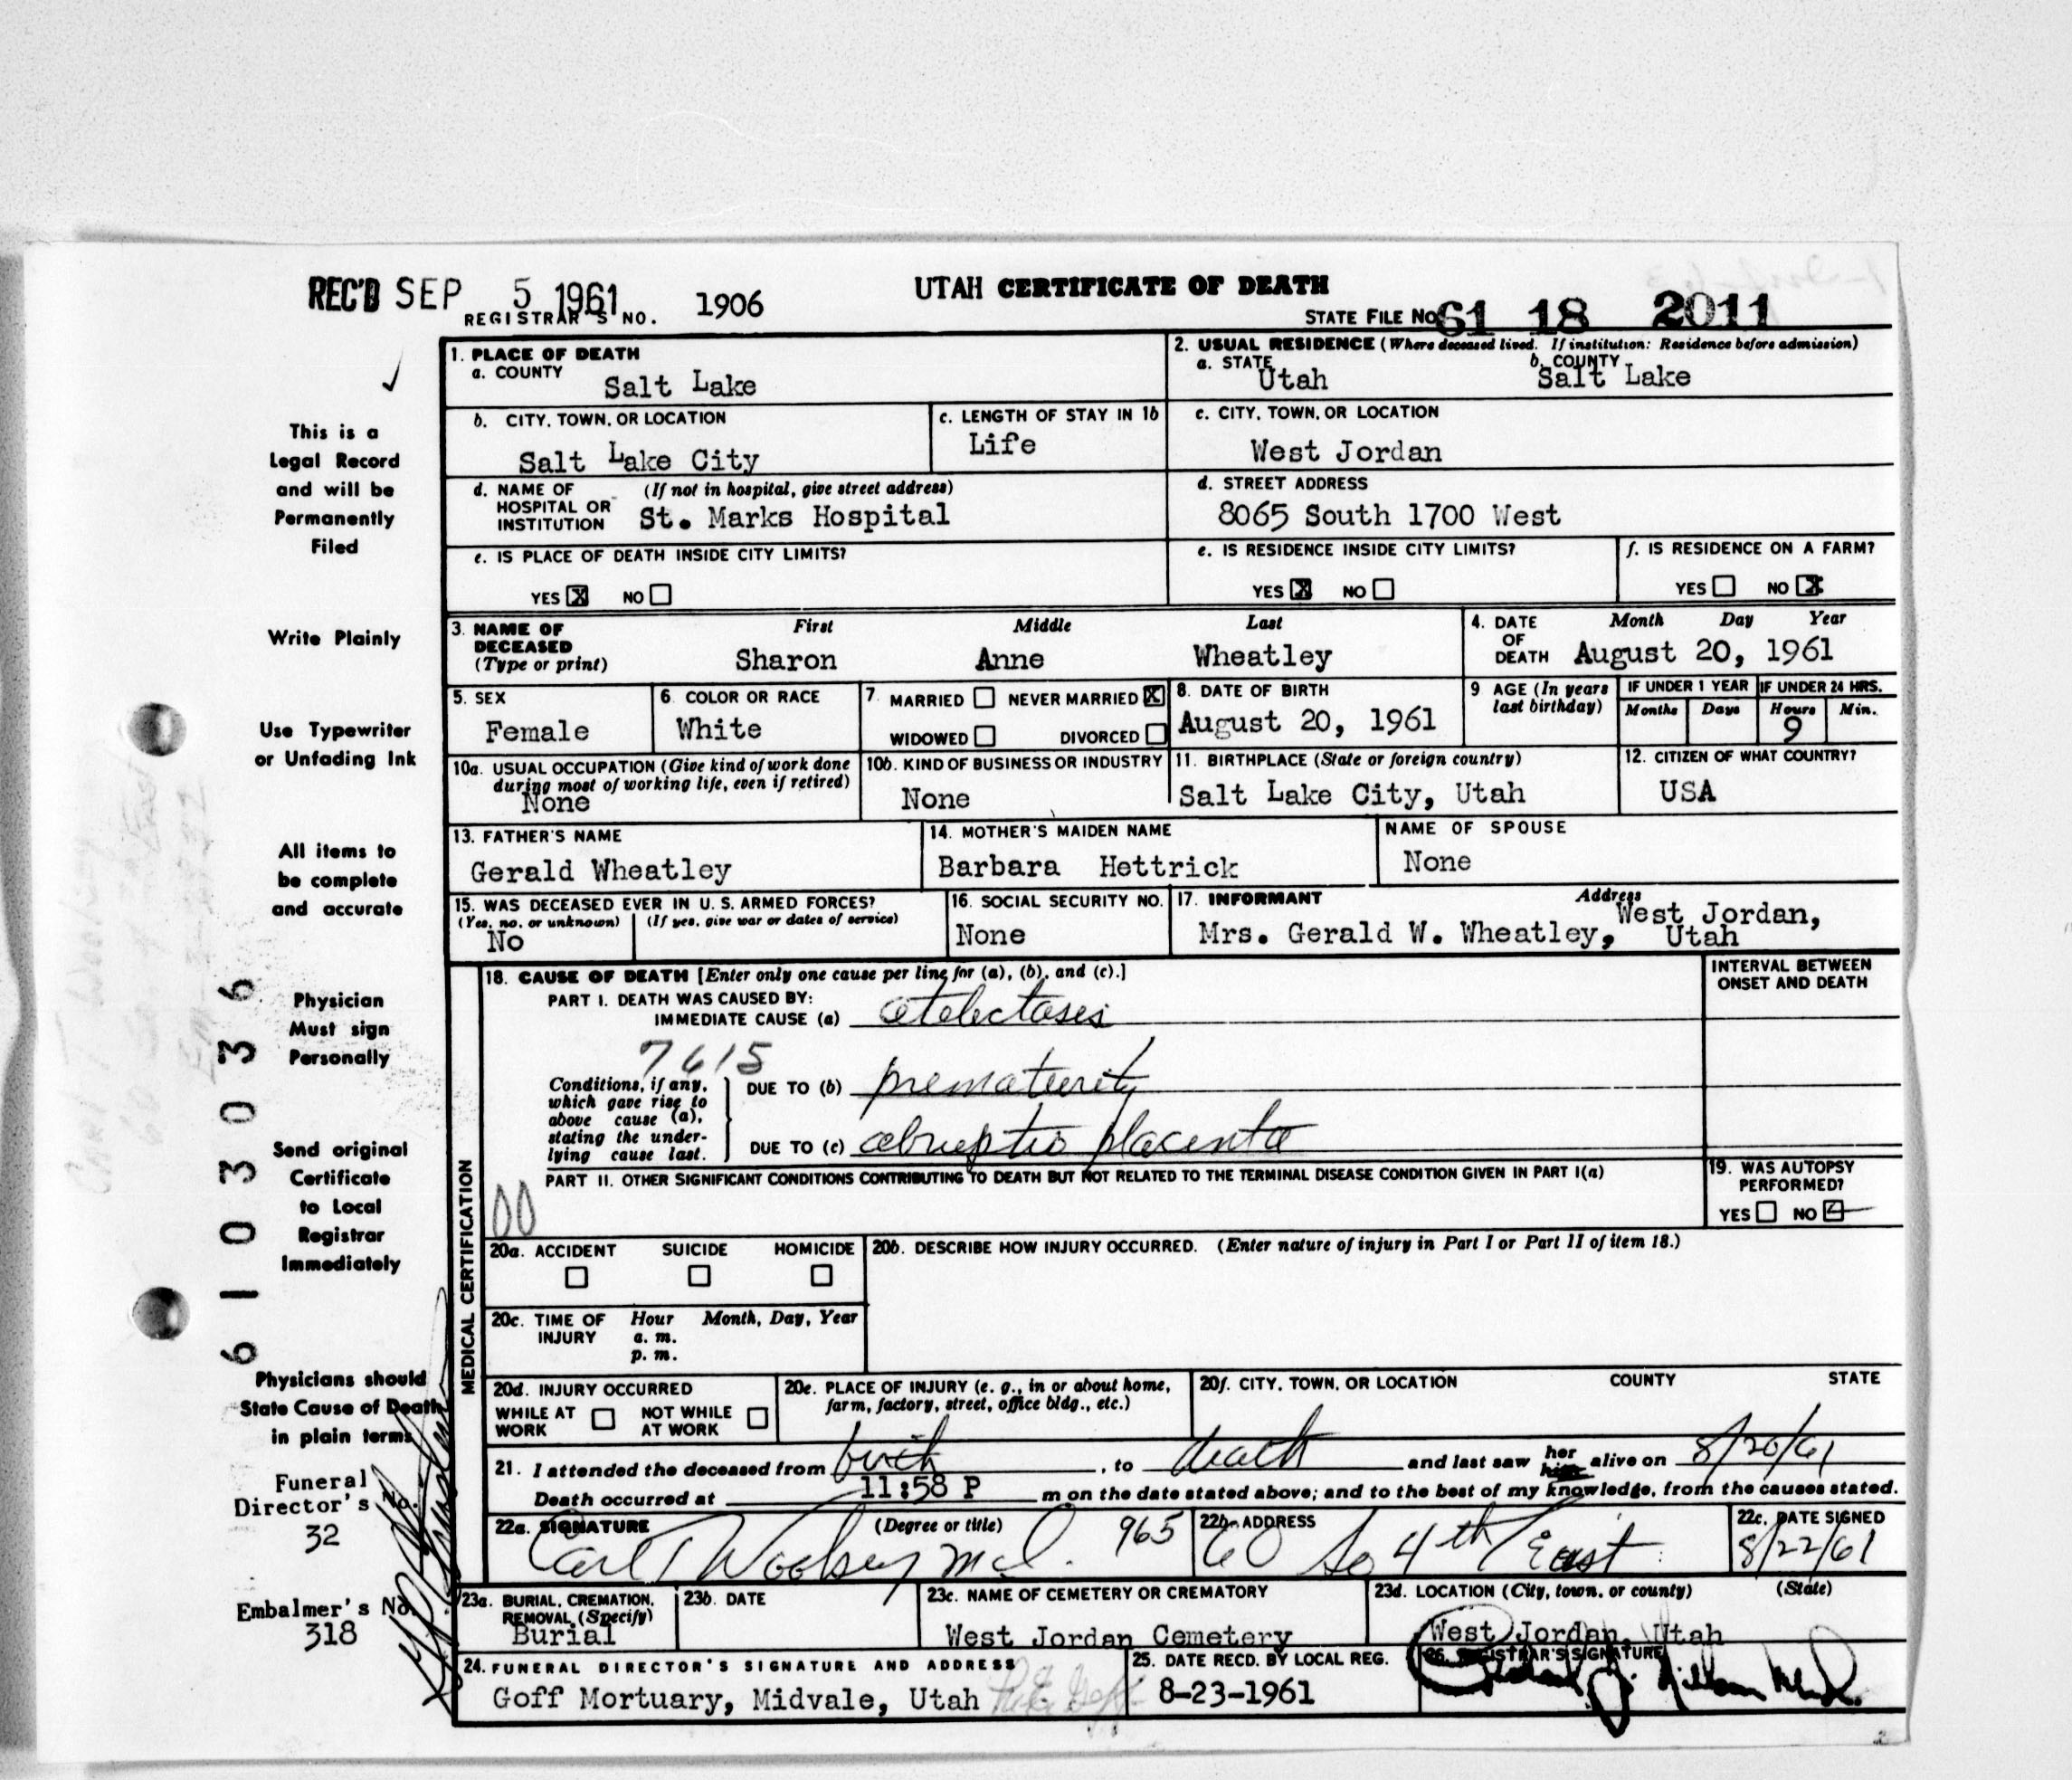 REC'D SEP 5 1961
UTAH CERTIFICATE OF DEATH
REGISTRAR'S NO. 1906
STATE FILE NO. 61 18 2011
This is a
Legal Record
and will be
Permanently
Filed
Write Plainly
Use Typewriter
or Unfading Ink
All items to
be complete
and accurate
Physician
Must sign
Personally
Send original
Certificate
to Local
Registrar
Immediately
Physicians should
State Cause of Death
in plain terms
Funeral
Director's No.
32
Embalmer's No.
318
6103036
1. PLACE OF DEATH
a. COUNTY Salt Lake
2. USUAL RESIDENCE (Where deceased lived. If institution: Residence before admission)
a. STATE Utah b. COUNTY Salt Lake
b. CITY, TOWN, OR LOCATION
Salt Lake City
c. LENGTH OF STAY IN 1b
Life
c. CITY, TOWN, OR LOCATION
West Jordan
d. NAME OF HOSPITAL OR INSTITUTION (If not in hospital, give street address)
St. Marks Hospital
d. STREET ADDRESS
8065 South 1700 West
e. IS PLACE OF DEATH INSIDE CITY LIMITS?
YES X NO
e. IS RESIDENCE INSIDE CITY LIMITS?
YES X NO
f. IS RESIDENCE ON A FARM?
YES NO X
3. NAME OF DECEASED (Type or print)
First Middle Last
Sharon Anne Wheatley
4. DATE OF DEATH Month Day Year
August 20, 1961
5. SEX
Female
6. COLOR OR RACE
White
7. MARRIED NEVER MARRIED X
WIDOWED DIVORCED
8. DATE OF BIRTH
August 20, 1961
9 AGE (In years last birthday)
IF UNDER 1 YEAR IF UNDER 24 HRS.
Months Days Hours Min.
9
10a. USUAL OCCUPATION (Give kind of work done during most of working life, even if retired)
None
10b. KIND OF BUSINESS OR INDUSTRY
None
11. BIRTHPLACE (State or foreign country)
Salt Lake City, Utah
12. CITIZEN OF WHAT COUNTRY?
USA
13. FATHER'S NAME
Gerald Wheatley
14. MOTHER'S MAIDEN NAME
Barbara Hettrick
NAME OF SPOUSE
None
15. WAS DECEASED EVER IN U.S. ARMED FORCES?
(Yes, no, or unknown) (If yes, give war or dates of service)
No
16. SOCIAL SECURITY NO.
None
17. INFORMANT Address
Mrs. Gerald W. Wheatley, West Jordan, Utah
MEDICAL CERTIFICATION
18. CAUSE OF DEATH [Enter only one cause per line for (a), (b), and (c).]
INTERVAL BETWEEN ONSET AND DEATH
PART I. DEATH WAS CAUSED BY:
IMMEDIATE CAUSE (a) atelectasis
7615
Conditions, if any, which gave rise to above cause (a), stating the underlying cause last.
DUE TO (b) prematurity
DUE TO (c) abruptio placenta
PART II. OTHER SIGNIFICANT CONDITIONS CONTRIBUTING TO DEATH BUT NOT RELATED TO THE TERMINAL DISEASE CONDITION GIVEN IN PART I(a)
00
19. WAS AUTOPSY PERFORMED?
YES NO
20a. ACCIDENT SUICIDE HOMICIDE
20b. DESCRIBE HOW INJURY OCCURRED. (Enter nature of injury in Part I or Part II of item 18.)
20c. TIME OF INJURY Hour Month, Day, Year
a. m.
p. m.
20d. INJURY OCCURRED
WHILE AT WORK NOT WHILE AT WORK
20e. PLACE OF INJURY (e. g., in or about home, farm, factory, street, office bldg., etc.)
20f. CITY, TOWN, OR LOCATION COUNTY STATE
21. I attended the deceased from birth, to death and last saw her him alive on 8/20/61
Death occurred at 11:58 P m on the date stated above; and to the best of my knowledge, from the causes stated.
22a. SIGNATURE (Degree or title)
Carl T Woolsey M.D. 965
22b. ADDRESS
60 So 4th East
22c. DATE SIGNED
8/22/61
23a. BURIAL, CREMATION, REMOVAL (Specify)
Burial
23b. DATE
23c. NAME OF CEMETERY OR CREMATORY
West Jordan Cemetery
23d. LOCATION (City, town, or county) (State)
West Jordan, Utah
24. FUNERAL DIRECTOR'S SIGNATURE AND ADDRESS
Goff Mortuary, Midvale, Utah
25. DATE RECD. BY LOCAL REG.
8-23-1961
26. REGISTRAR'S SIGNATURE